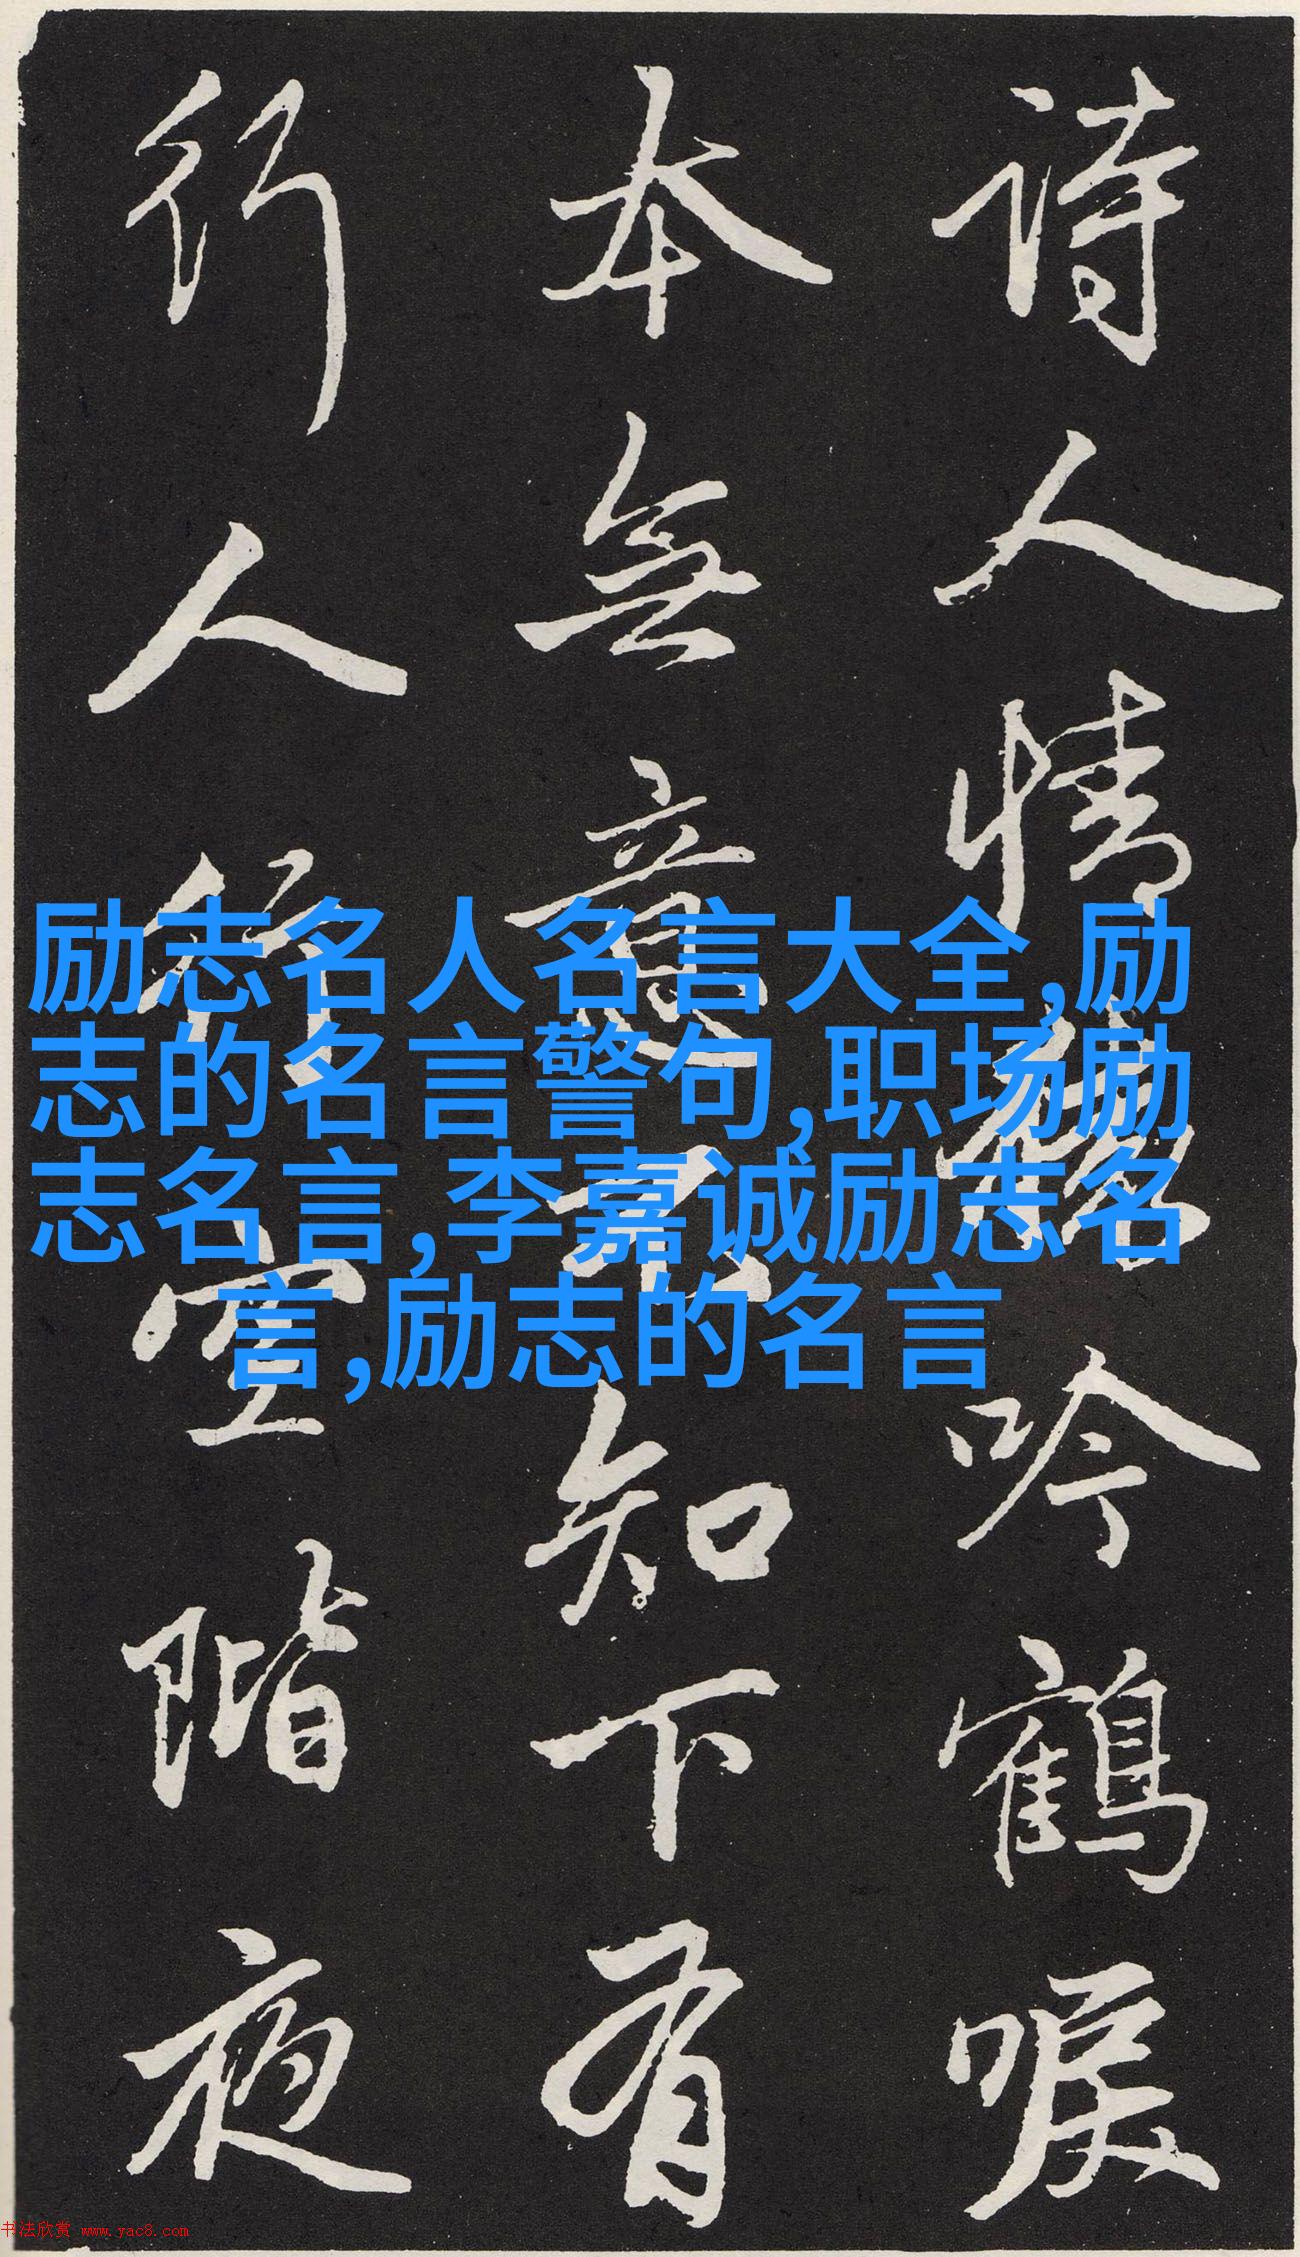 詩人情猿吟鶴唳
本無意不知下有
行人行空階夜
励志名人名言大全,励
志的名言警句,职场励
志名言,李嘉诚励志名
言,励志的名言
书法欣赏 www.yac8.com